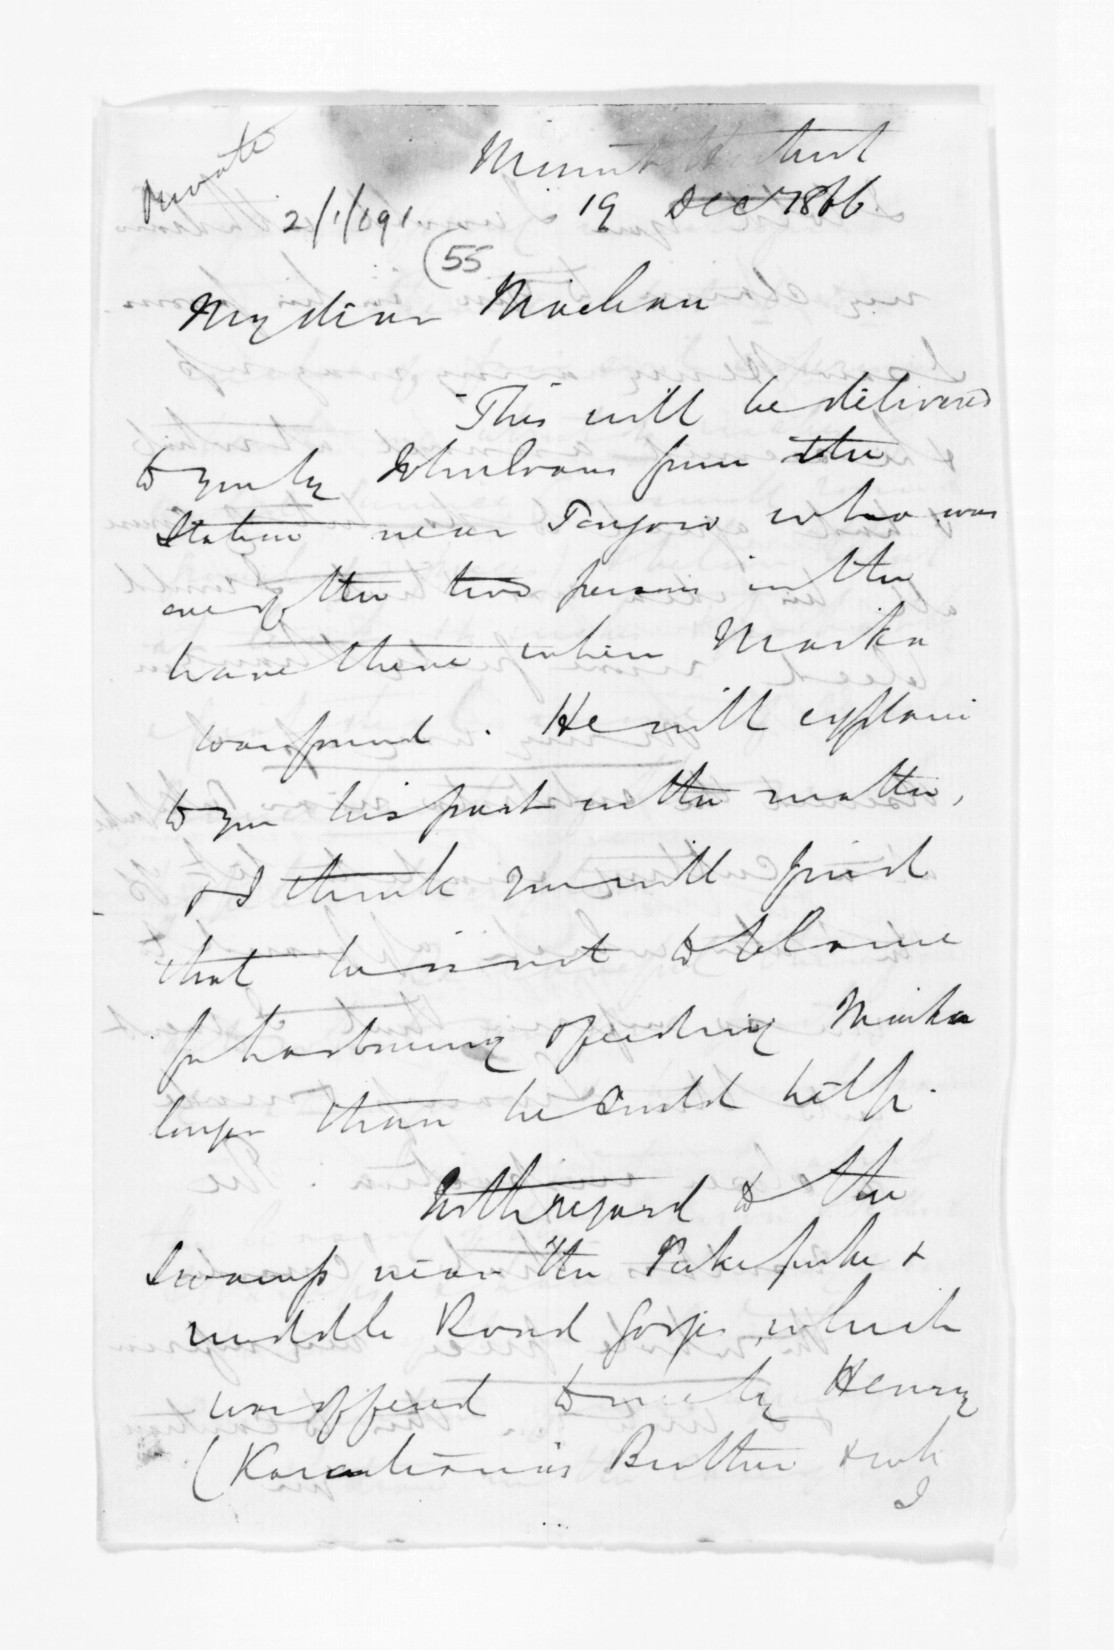 Private
Mount Herbert
19 Dec 1866
2/1/091
(55
My dear Maclean
This will be delivered
to you by John Evans from the
Station near Tangoio who was
one of the two persons in the
house there when Maika
was found. He will explain
to you his part in the matter,
& I think you will find
that he is not to blame
for harbouring & feeding Maika
longer than he could help.
With regard to the
swamp near the Pukepuke &
middle Road Gorge which
was offered to me by Henry
(Karaitiana's Brother &
I